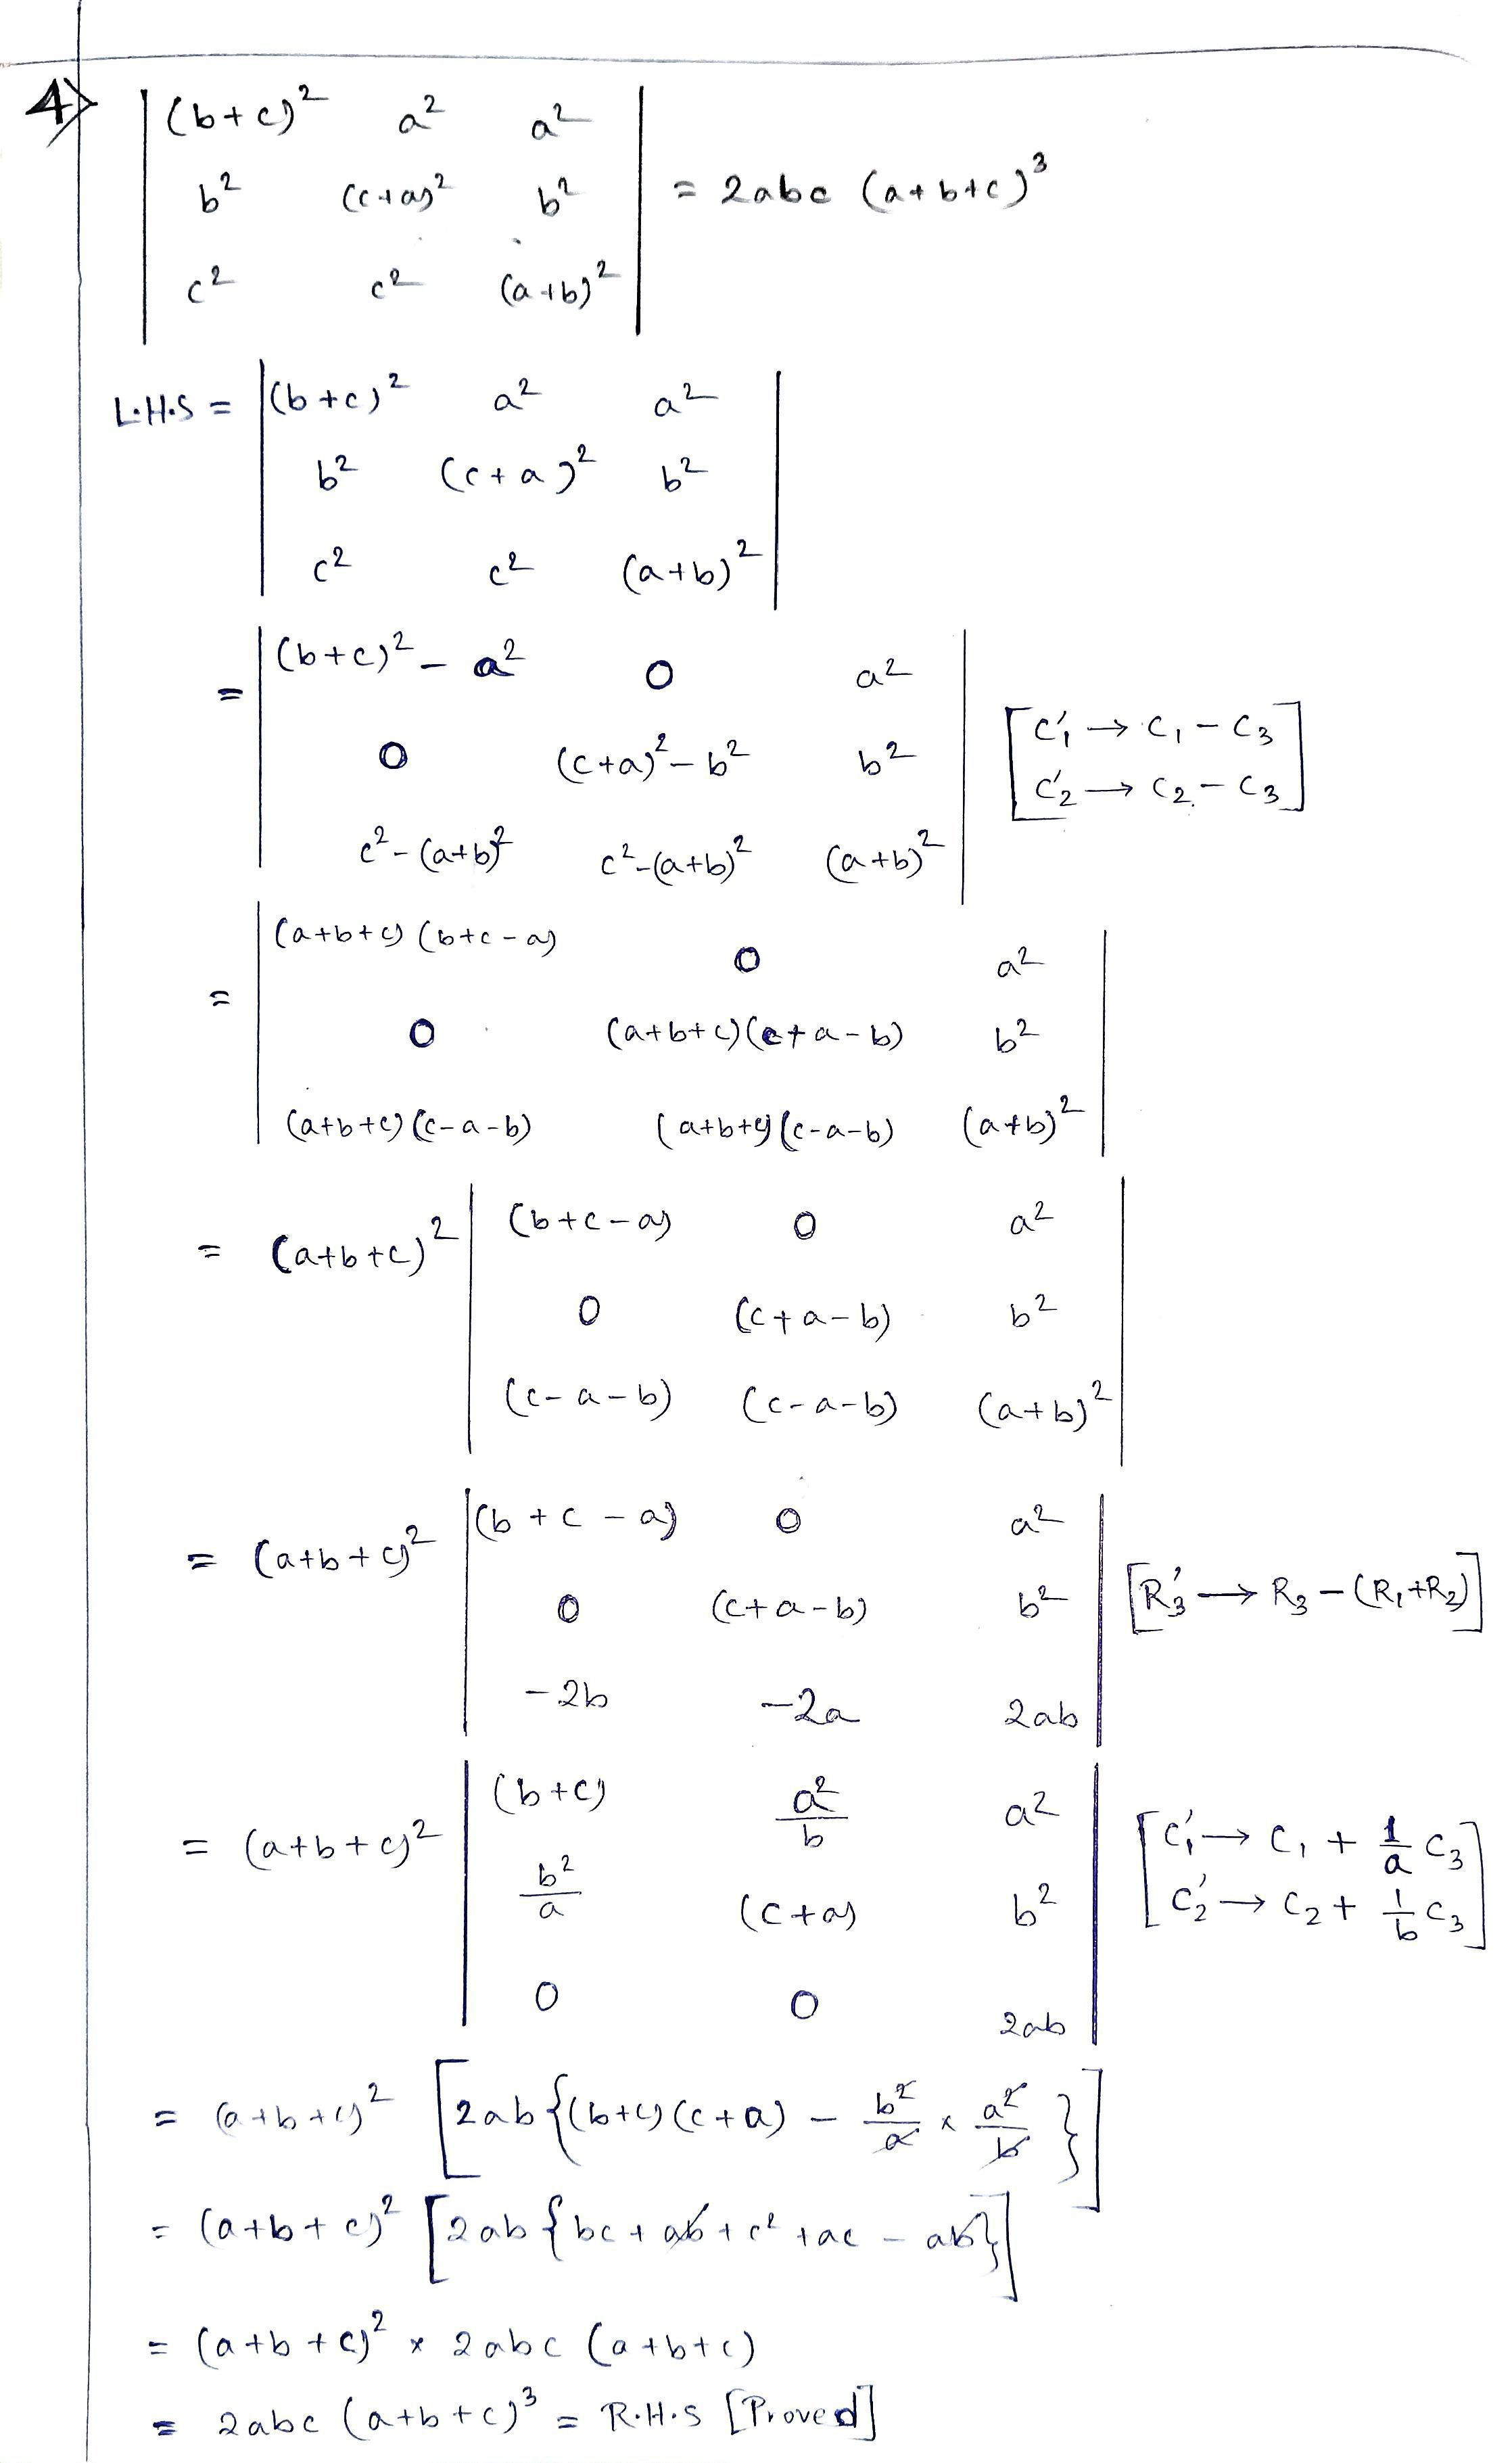 4) | (b+c)² a² a² |
| b² (c+a)² b² | = 2abc (a+b+c)³
| c² c² (a+b)² |
L.H.S = | (b+c)² a² a² |
| b² (c+a)² b² |
| c² c² (a+b)² |
= | (b+c)² - a² 0 a² |
| 0 (c+a)² - b² b² | [C₁' → C₁ - C₃
C₂' → C₂ - C₃]
| c² - (a+b)² c² - (a+b)² (a+b)² |
= | (a+b+c) (b+c-a) 0 a² |
| 0 (a+b+c)(c+a-b) b² |
| (a+b+c)(c-a-b) (a+b+c)(c-a-b) (a+b)² |
= (a+b+c)² | (b+c-a) 0 a² |
| 0 (c+a-b) b² |
| (c-a-b) (c-a-b) (a+b)² |
= (a+b+c)² | (b+c-a) 0 a² |
| 0 (c+a-b) b² | [R₃' → R₃ - (R₁+R₂)]
| -2b -2a 2ab |
= (a+b+c)² | (b+c) a²/b a² |
| b²/a (c+a) b² | [C₁' → C₁ + 1/a C₃
C₂' → C₂ + 1/b C₃]
| 0 0 2ab |
= (a+b+c)² [2ab{(b+c)(c+a) - b²/a × a²/b}]
= (a+b+c)² [2ab{bc + ab + c² + ac - ab}]
= (a+b+c)² × 2abc (a+b+c)
= 2abc (a+b+c)³ = R.H.S [Proved]